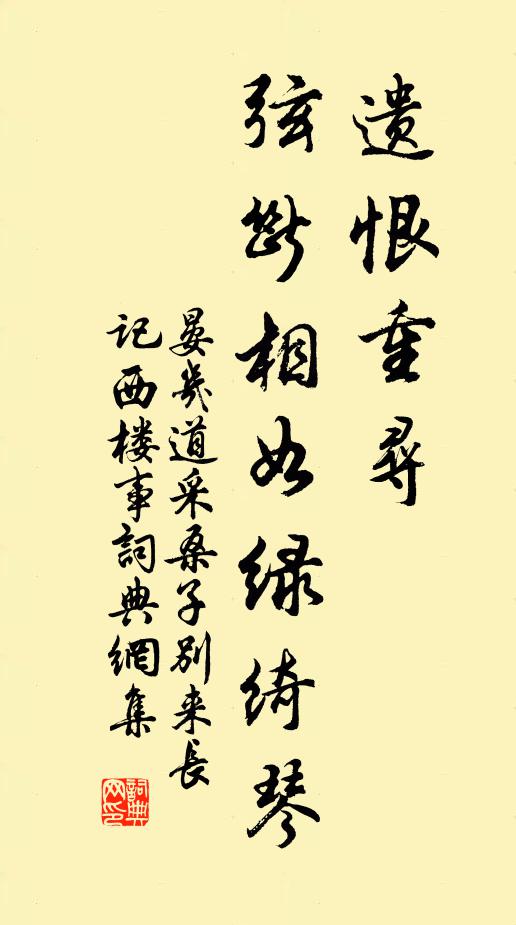 遗恨重寻
弦断相如绿绮琴
晏几道采桑子别来长
记西楼事詞典網集
詞典
网印